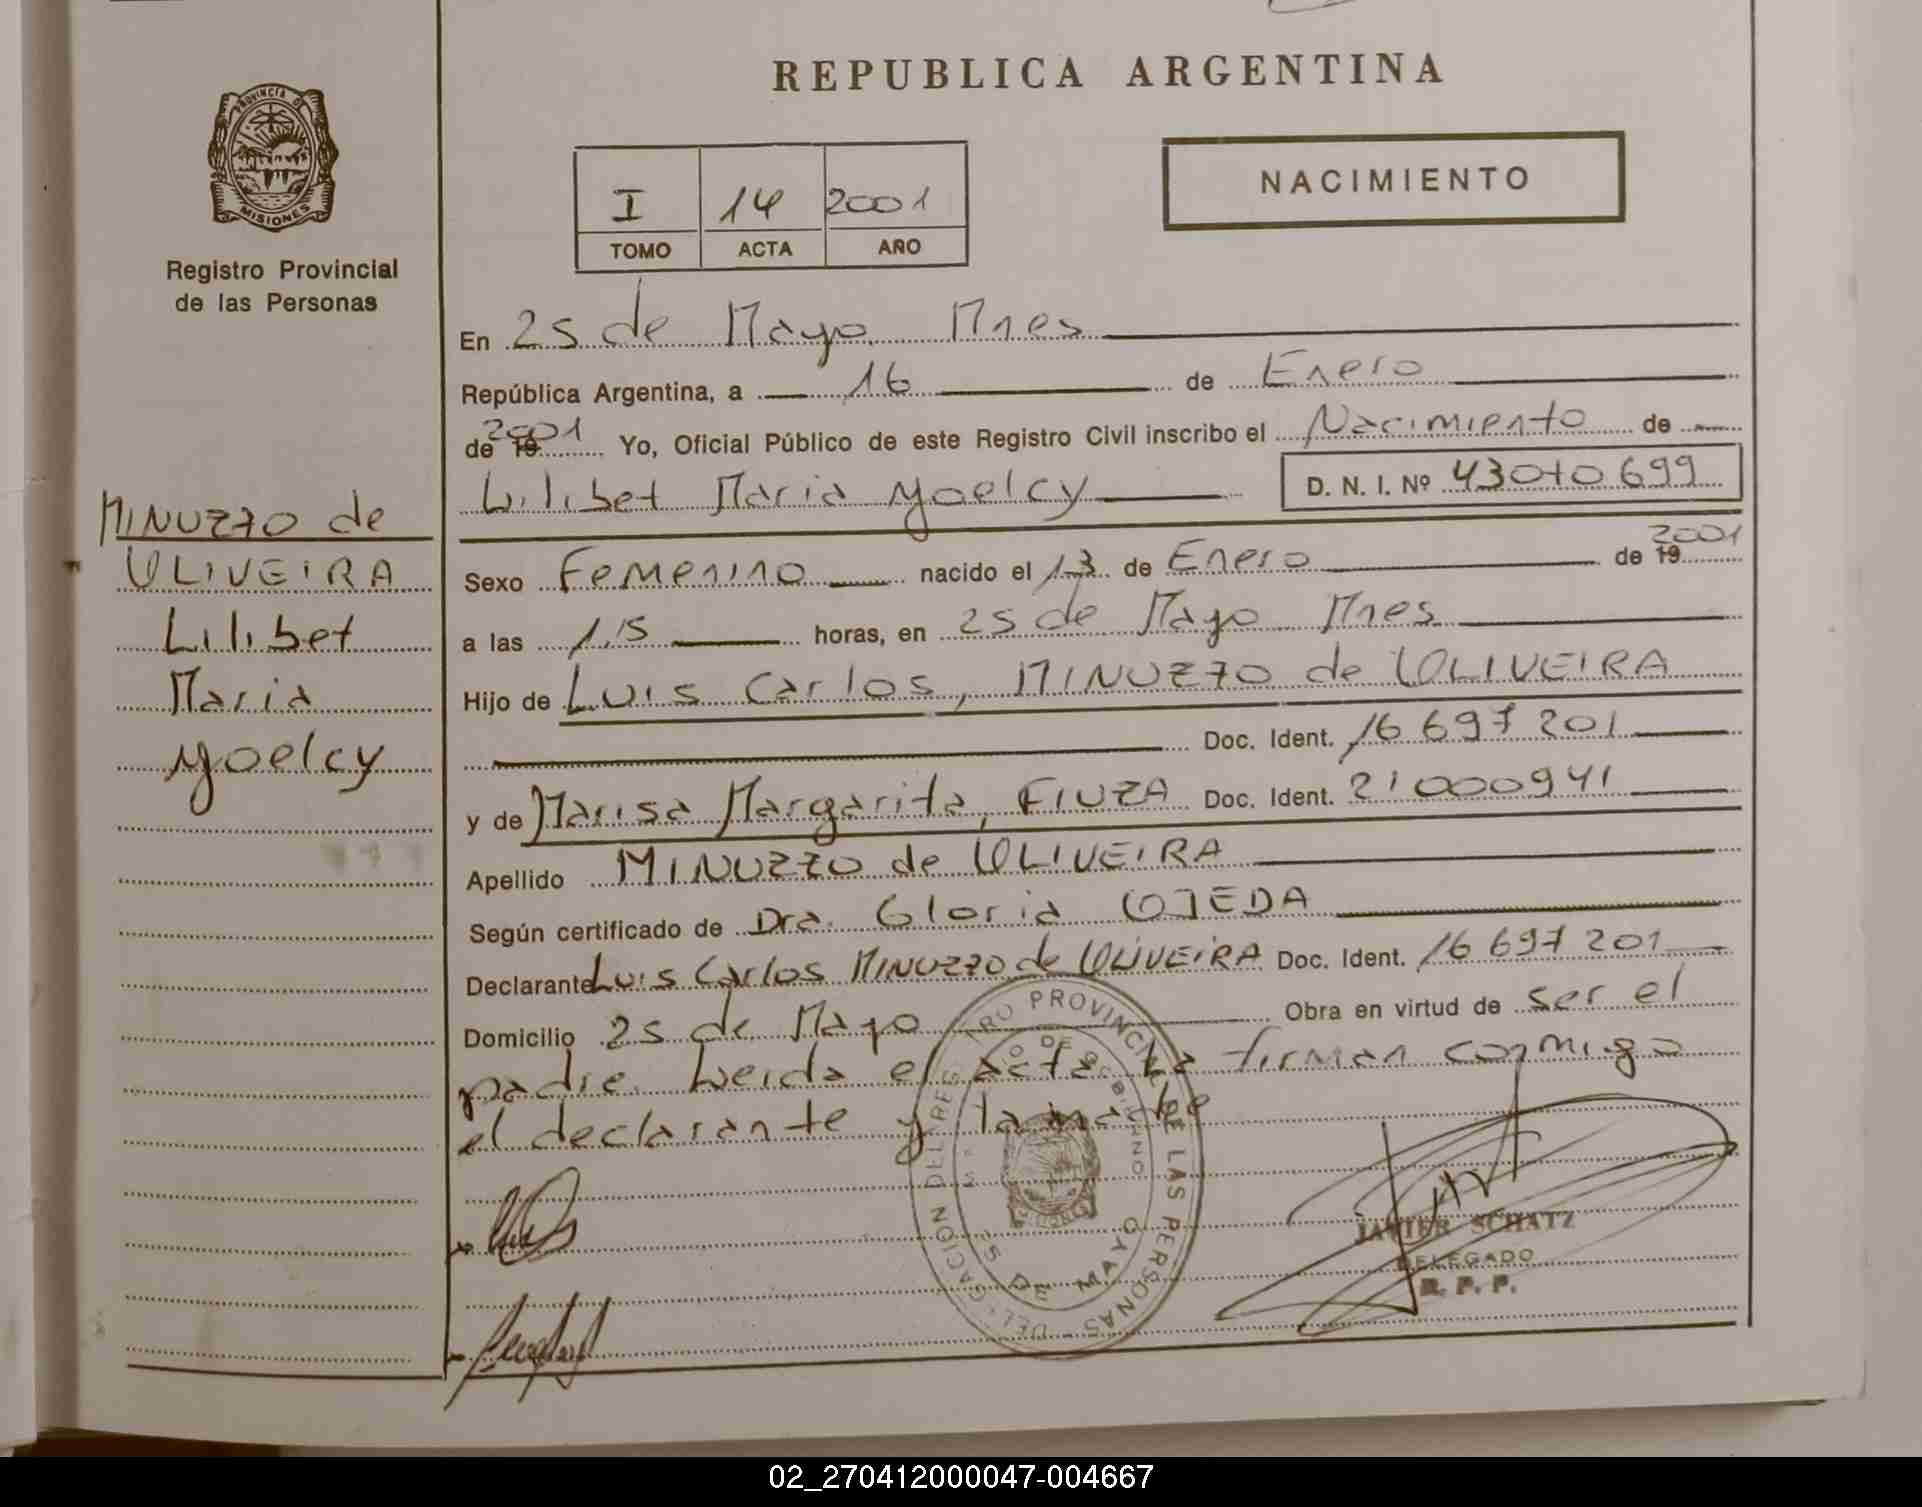 REPUBLICA ARGENTINA
PROVINCIA D
MISIONES
Registro Provincial
de las Personas
I 14 2001
TOMO ACTA AÑO
NACIMIENTO
En 25 de Mayo Mnes
República Argentina, a 16 de Enero
de 19 2001 Yo, Oficial Público de este Registro Civil inscribo el Nacimiento de
Lilibet Maria Yoelcy D. N. I. Nº 43070699
MINUZZO de
OLIVEIRA
Lilibet
Maria
Yoelcy
Sexo Femenino nacido el 13 de Enero de 19 2001
a las 1,15 horas, en 25 de Mayo Mnes
Hijo de Luis Carlos, MINUZZO de OLIVEIRA
Doc. Ident. 16 697 201
y de Marisa Margarita, FIUZA Doc. Ident. 21000941
Apellido MINUZZO de OLIVEIRA
Según certificado de Dra. Gloria OJEDA
Declarante Luis Carlos MINUZZO de OLIVEIRA Doc. Ident. 16 697 201
Domicilio 25 de Mayo Obra en virtud de ser el
padre. Leida el acta la firman conmigo
el declarante y la madre
JAVIER SCHATZ
DELEGADO
R. P. P.
02_270412000047-004667